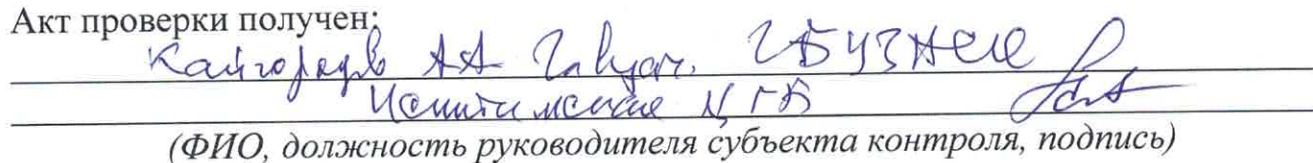 Акт проверки получен:
Кайгородов АА Гл. врач. ГБУЗ НСО
Искитимская ЦГБ
(ФИО, должность руководителя субъекта контроля, подпись)